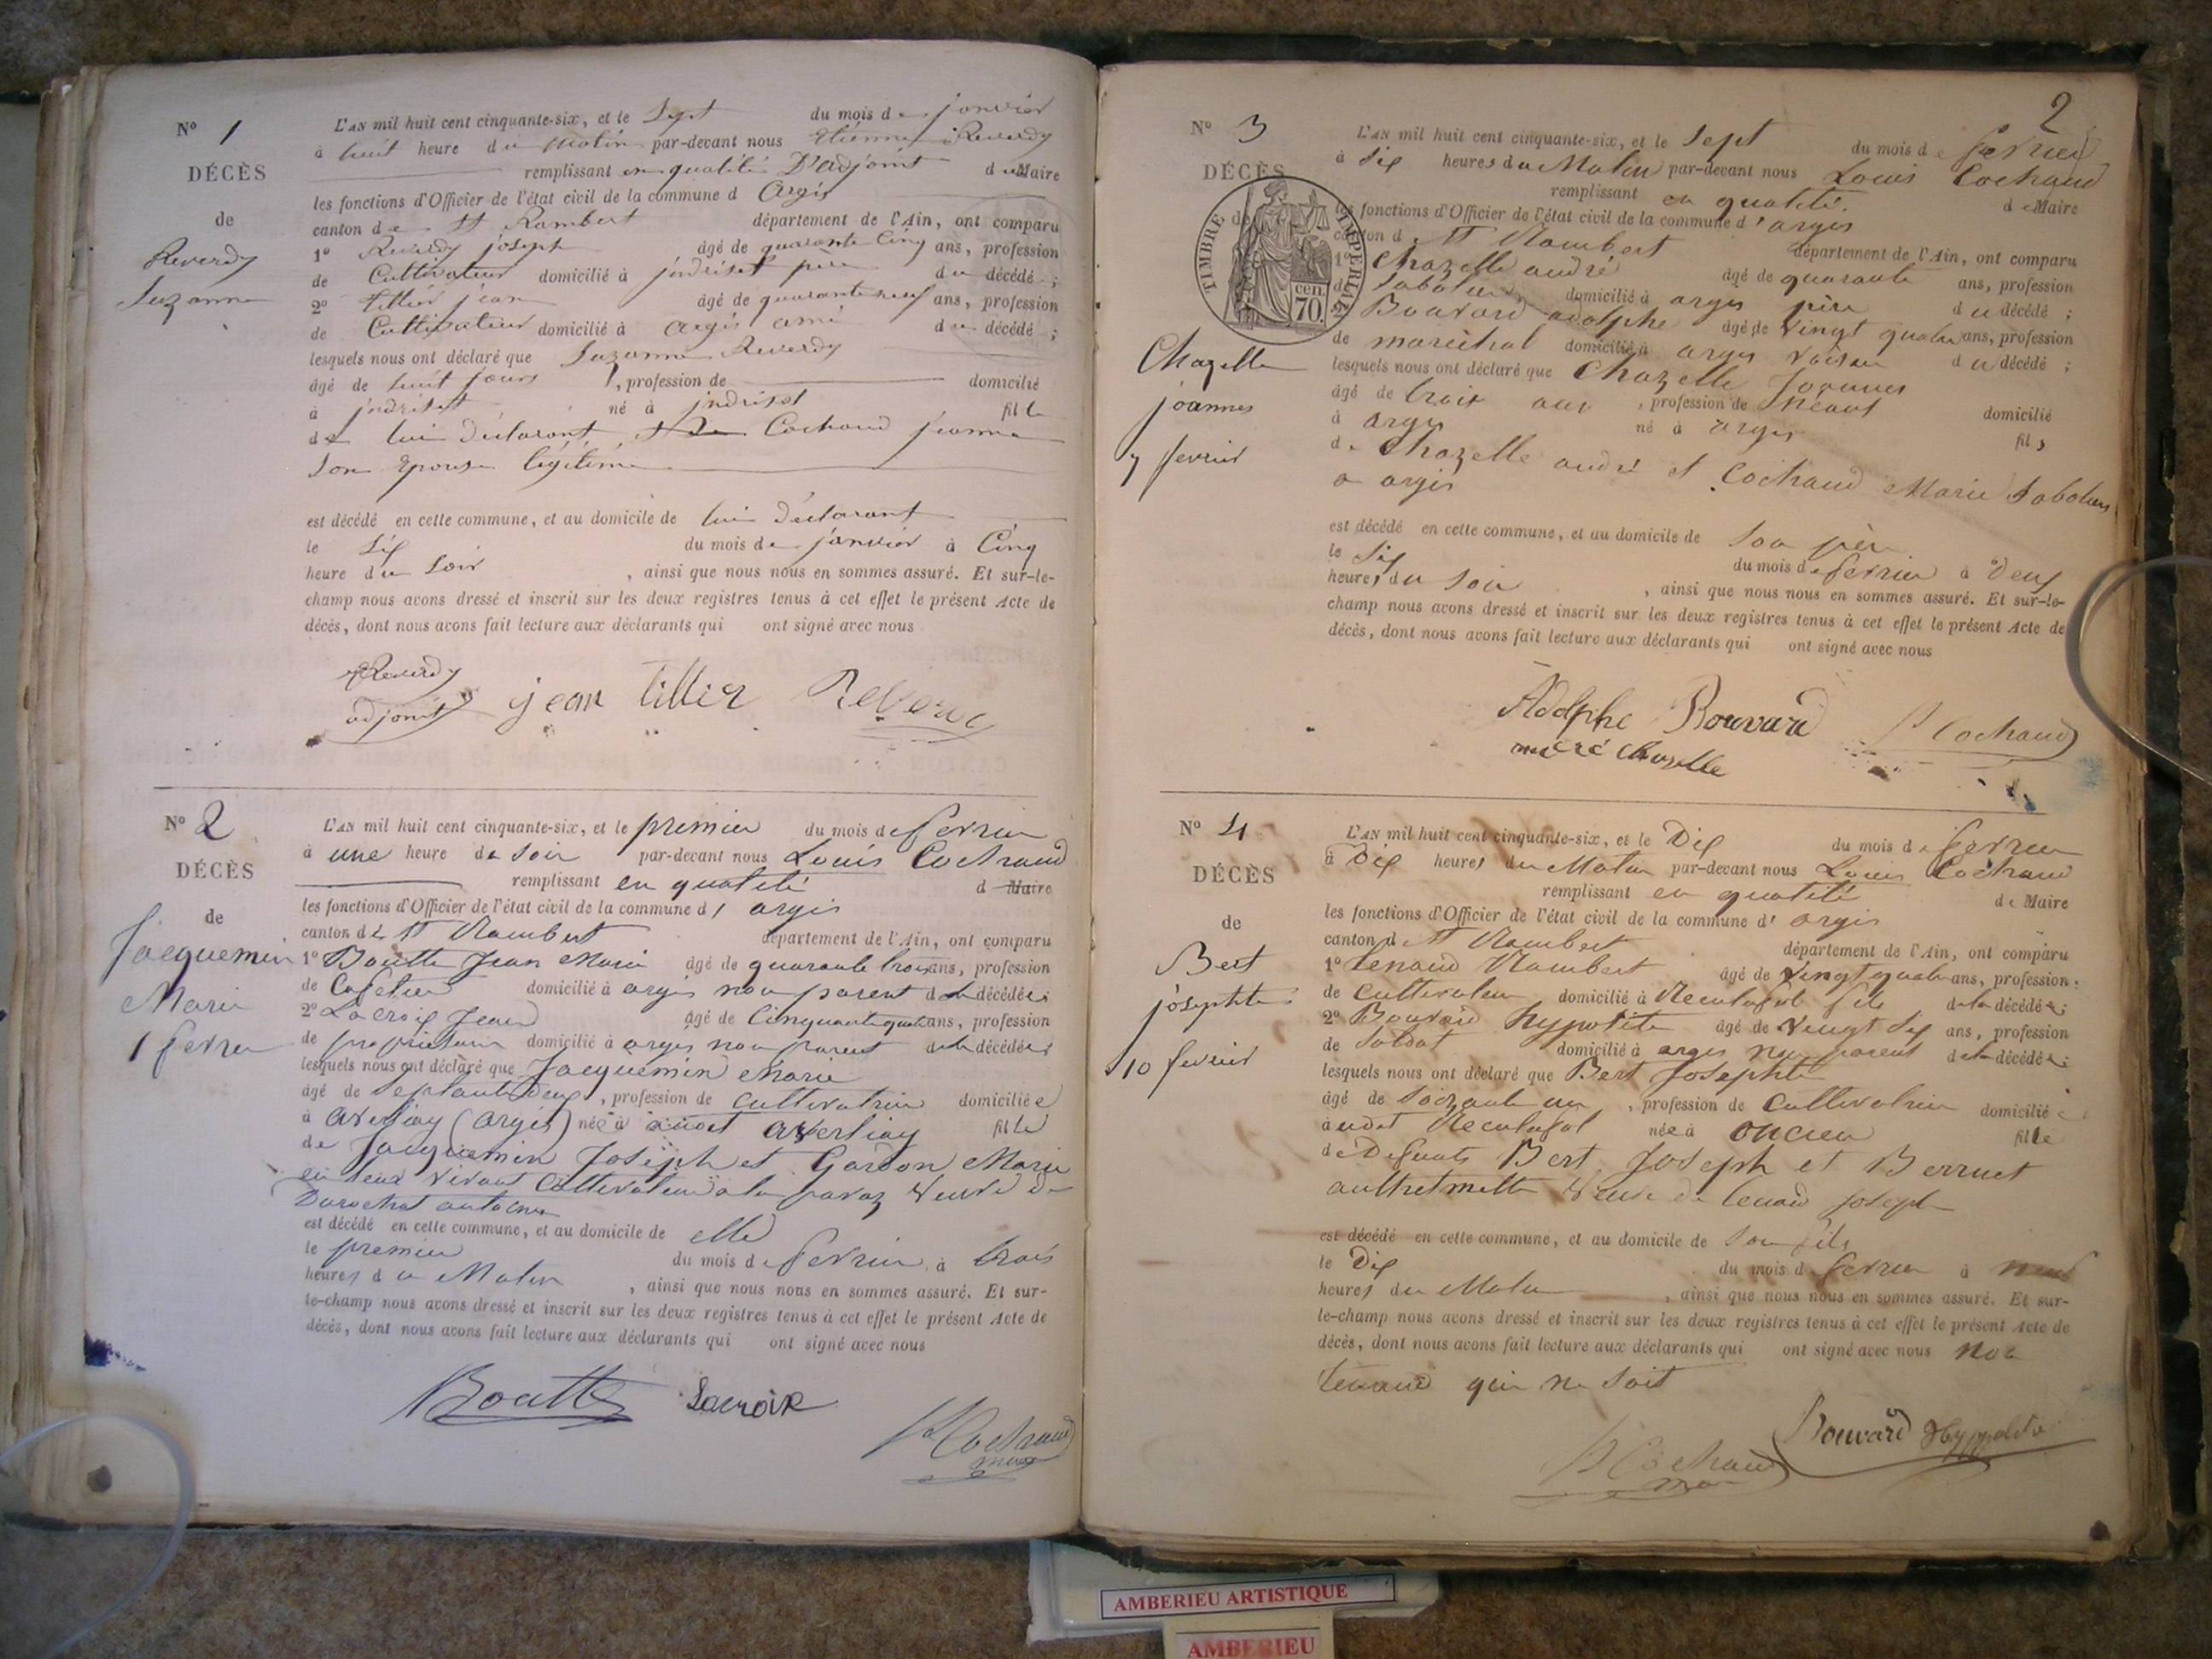 N° 1
DÉCÈS
de
Reverdy
Suzanne
L'AN mil huit cent cinquante-six, et le Sept du mois de janvier
à huit heure du matin par-devant nous Etienne Reverdy
remplissant en qualité D'adjoint du Maire
les fonctions d'Officier de l'état civil de la commune d Argis
canton de St Rambert département de l'Ain, ont comparu
1° Reverdy joseph âgé de quarante Cinq ans, profession
de Cultivateur domicilié à jndriset père du décédé ;
2° Tillier jean âgé de quarante neuf ans, profession
de Cultivateur domicilié à Argis ami du décédé ;
lesquels nous ont déclaré que Suzanne Reverdy
âgé de huit jours , profession de domicilié
à jndriset né à jndriset fille
de lui déclarant et de Cochaud jeanne
Son Epouse légitime
est décédé en cette commune, et au domicile de lui déclarant
le Six du mois de janvier à Cinq
heure du Soir , ainsi que nous nous en sommes assuré. Et sur-le-
champ nous avons dressé et inscrit sur les deux registres tenus à cet effet le présent Acte de
décès, dont nous avons fait lecture aux déclarants qui ont signé avec nous
Reverdy
adjoint jean tillier Reverdy
N° 2
DÉCÈS
de
Jacquemin
Marie
1 fevrier
L'AN mil huit cent cinquante-six, et le premier du mois de fevrier
à une heure du soir par-devant nous Louis Cochaud
remplissant en qualité d Maire
les fonctions d'Officier de l'état civil de la commune d' argis
canton de St Rambert département de l'Ain, ont comparu
1° Boutte Jean Marie âgé de quarante trois ans, profession
de domicilié à argis non parent de la décédée ;
2° Lacroix Jean âgé de Cinquante quatre ans, profession
de proprietaire domicilié à argis non parent de la décédée ;
lesquels nous ont déclaré que Jacquemin Marie
âgé de Septante deux , profession de cultivatrice domiciliée
à averliay (argis) née à averliay fille
de Jacquemin Joseph et Gardon Marie
en leur vivant Cultivateur a la veuve de
Durochat antoine
est décédé en cette commune, et au domicile de elle
le premier du mois de fevrier à trois
heures du Matin , ainsi que nous nous en sommes assuré. Et sur-
le-champ nous avons dressé et inscrit sur les deux registres tenus à cet effet le présent Acte de
décès, dont nous avons fait lecture aux déclarants qui ont signé avec nous
Boutte Lacroix
Ls Cochaud
maire
2
N° 3
DÉCÈS
de
TIMBRE IMPÉRIAL
70 cen.
Chazelle
joannes
7 fevrier
L'AN mil huit cent cinquante-six, et le Sept du mois de fevrier
à Six heures du Matin par-devant nous Louis Cochaud
remplissant en qualité. de Maire
les fonctions d'Officier de l'état civil de la commune d'argis
canton d St Rambert département de l'Ain, ont comparu
1° Chazelle andré âgé de quarante ans, profession
de Sabotier domicilié à argis père du décédé ;
Bouvard adolphe âgé de Vingt quatre ans, profession
de maréchal domicilié à argis voisin du décédé ;
lesquels nous ont déclaré que Chazelle Joannes
âgé de trois ans , profession de Néant domicilié
à argis né à argis fils
de Chazelle andré et Cochaud Marie Sabotiers
a argis
est décédé en cette commune, et au domicile de Son père
le Six du mois de fevrier à Deux
heures du Soir , ainsi que nous nous en sommes assuré. Et sur-le-
champ nous avons dressé et inscrit sur les deux registres tenus à cet effet le présent Acte de
décès, dont nous avons fait lecture aux déclarants qui ont signé avec nous
Adolphe Bouvard Ls Cochaud
andré Chazelle
N° 4
DÉCÈS
de
Bert
josephte
10 fevrier
L'AN mil huit cent cinquante-six, et le Dix du mois de fevrier
à Dix heures du Matin par-devant nous Louis Cochaud
remplissant en qualité de Maire
les fonctions d'Officier de l'état civil de la commune d' argis
canton d St Rambert département de l'Ain, ont comparu
1° Tenand Rambert âgé de Vingt quatre ans, profession
de cultivateur domicilié à Reculafol fils de la décédée ;
2° Bouvard hypolite âgé de Vingt Six ans, profession
de Soldat domicilié à argis non parent de la décédée ;
lesquels nous ont déclaré que Bert Josephte
âgé de Soixante un , profession de Cultivatrice domicilié e
à udit Reculafol née à oncieu fille
de Defunts Bert Joseph et Berruet
veuve de Tenand Joseph
est décédé en cette commune, et au domicile de Son fils
le Dix du mois d fevrier à neuf
heures du Matin , ainsi que nous nous en sommes assuré. Et sur-
le-champ nous avons dressé et inscrit sur les deux registres tenus à cet effet le présent Acte de
décès, dont nous avons fait lecture aux déclarants qui ont signé avec nous non
Tenand qui ne Sait
Bouvard Hyppolite
Ls Cochaud
maire
AMBERIEU ARTISTIQUE
AMBERIEU